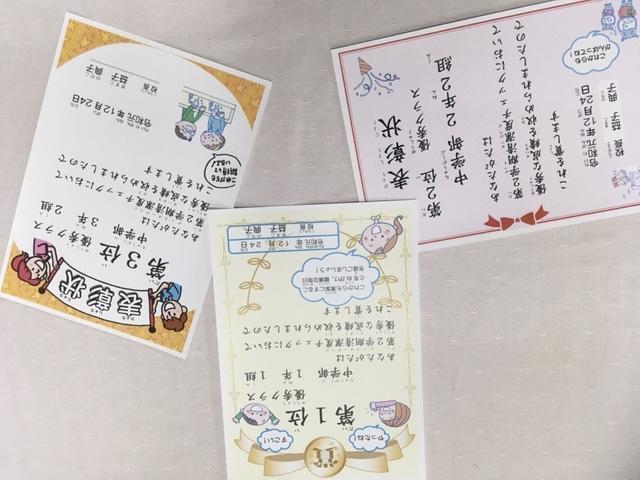 表彰状
第3位
優秀クラス
中学部 3年 2組
あなたがたは
第2学期清潔度チェックにおいて
優秀な成績を収められましたので
これを賞します
令和元年12月24日
校長 益子 典子
表彰状
第2位 優秀クラス
中学部 2年2組
あなたがたは
第2学期清潔度チェックにおいて
優秀な成績を収められましたので
これを賞します
令和元年12月24日
校長 益子 典子
これからも
がんばってね!
賞
やったね!
すごい!
第1位
優秀クラス
中学部 1年 1組
あなたがたは
第2学期清潔度チェックにおいて
優秀な成績を収められましたので
これを賞します
これからも清潔にするこ
とを心がけ、健康な毎日
を過ごしましょう!
令和元年 12月24日
校長 益子 典子